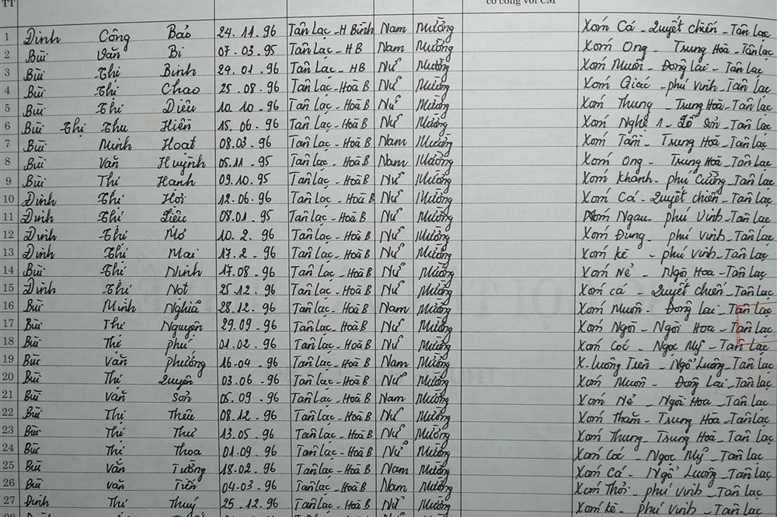 TT có công với CM
1 Đinh Công Bảo 24.11.96 Tân Lạc-H Bình Nam Mường Xóm Cá - Quyết chiến - Tân Lạc
2 Bùi Văn Bi 07.03.95 Tân Lạc-HB Nam Mường Xóm Ong - Trung Hoà - Tân Lạc
3 Bùi Thị Bình 24.01.96 Tân Lạc-HB Nữ Mường Xóm Muôn - Đông Lai - Tân Lạc
4 Bùi Thị Chao 25.08.96 Tân Lạc-Hoà B Nữ Mường Xóm Giác - phú Vinh - Tân Lạc
5 Bùi Thị Diệu 10.10.96 Tân Lạc-Hoà B Nữ Mường Xóm Thung - Trung Hoà - Tân Lạc
6 Bùi Thị Thu Hiền 15.06.96 Tân Lạc-Hoà B Nữ Mường Xóm Nghẹ 1 - Lỗ Sơn - Tân Lạc
7 Bùi Minh Hoạt 08.03.96 Tân Lạc-Hoà B Nam Mường Xóm Tâm - Trung Hoà - Tân Lạc
8 Bùi Văn Huỳnh 05.11.95 Tân Lạc-Hoà B Nam Mường Xóm Ong - Trung Hoà - Tân Lạc
9 Bùi Thị Hạnh 09.10.95 Tân Lạc-Hoà B Nữ Mường Xóm khanh - phú Cường - Tân Lạc
10 Đinh Thị Hơi 12.06.96 Tân Lạc-Hoà B Nữ Mường Xóm Cá - Quyết chiến - Tân Lạc
11 Đinh Thị Liễu 08.01.95 Tân Lạc-Hoà B Nữ Mường Xóm Ngau - phú Vinh - Tân Lạc
12 Đinh Thị Mơ 10.2.96 Tân Lạc-Hoà B Nữ Mường Xóm Đung - phú Vinh - Tân Lạc
13 Đinh Thị Mai 17.2.96 Tân Lạc-Hoà B Nữ Mường Xóm kè - phú Vinh - Tân Lạc
14 Bùi Thị Ninh 17.08.96 Tân Lạc-Hoà B Nữ Mường Xóm Nẻ - Ngòi Hoa - Tân Lạc
15 Đinh Thị Nọt 25.12.96 Tân Lạc-Hoà B Nữ Mường Xóm cá - Quyết chiến - Tân Lạc
16 Bùi Minh Nghĩa 28.12.96 Tân Lạc-Hoà B Nam Mường Xóm Muôn - Đông Lai - Tân Lạc
17 Bùi Thị Nguyện 29.09.96 Tân Lạc-Hoà B Nữ Mường Xóm Ngòi - Ngòi Hoa - Tân Lạc
18 Bùi Thị phú 01.02.96 Tân Lạc-Hoà B Nữ Mường Xóm Cóc - Ngọc Mỹ - Tân Lạc
19 Bùi Văn phương 16-04.96 Tân Lạc-Hoà B Nam Mường X.Luông Trên - Ngổ Luông - Tân Lạc
20 Bùi Thị Quyên 03.06.96 Tân Lạc-Hoà B Nữ Mường Xóm Muôn - Đông Lai - Tân Lạc
21 Bùi Văn Sơn 05.09.96 Tân Lạc-Hoà B Nam Mường Xóm Nẻ - Ngòi Hoa - Tân Lạc
22 Bùi Thị Thêu 08.12.96 Tân Lạc-Hoà B Nữ Mường Xóm Thăm - Trung Hoà - Tân Lạc
23 Bùi Thị Thư 13.05.96 Tân Lạc-Hoà B Nữ Mường Xóm Thung - Trung Hoà - Tân Lạc
24 Bùi Thị Thoa 01-09.96 Tân Lạc-Hoà B Nữ Mường Xóm Cóc - Ngọc Mỹ - Tân Lạc
25 Bùi Văn Tưởng 18-02.96 Tân Lạc-Hoà B Nam Mường Xóm Cá - Ngổ Luông - Tân Lạc
26 Bùi Văn Tiến 04-03.96 Tân Lạc-Hoà B Nam Mường Xóm Thỏi - phú Vinh - Tân Lạc
27 Đinh Thị Thuý 25.12.96 Tân Lạc-Hoà B Nữ Mường Xóm kè - phú Vinh - Tân Lạc
28